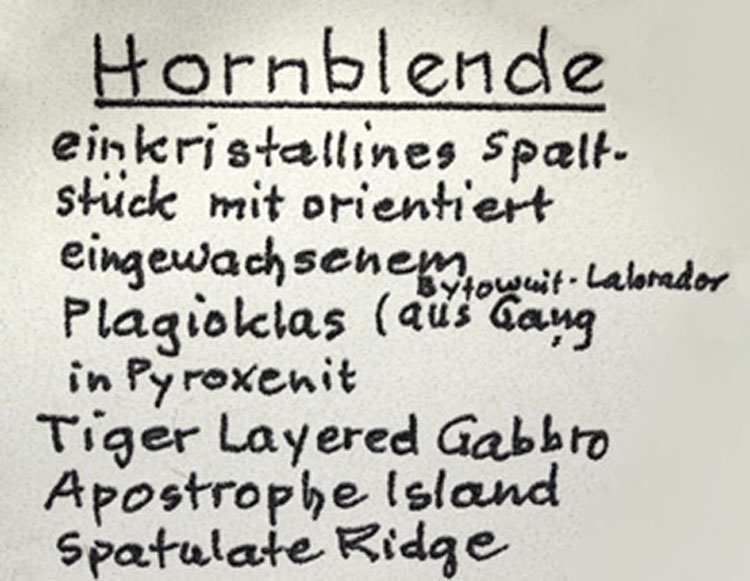 Hornblende
einkristallines Spalt-
stück mit orientiert
eingewachsenem
Bytownit-Labrador
Plagioklas (aus Gang
in Pyroxenit
Tiger Layered Gabbro
Apostrophe Island
Spatulate Ridge